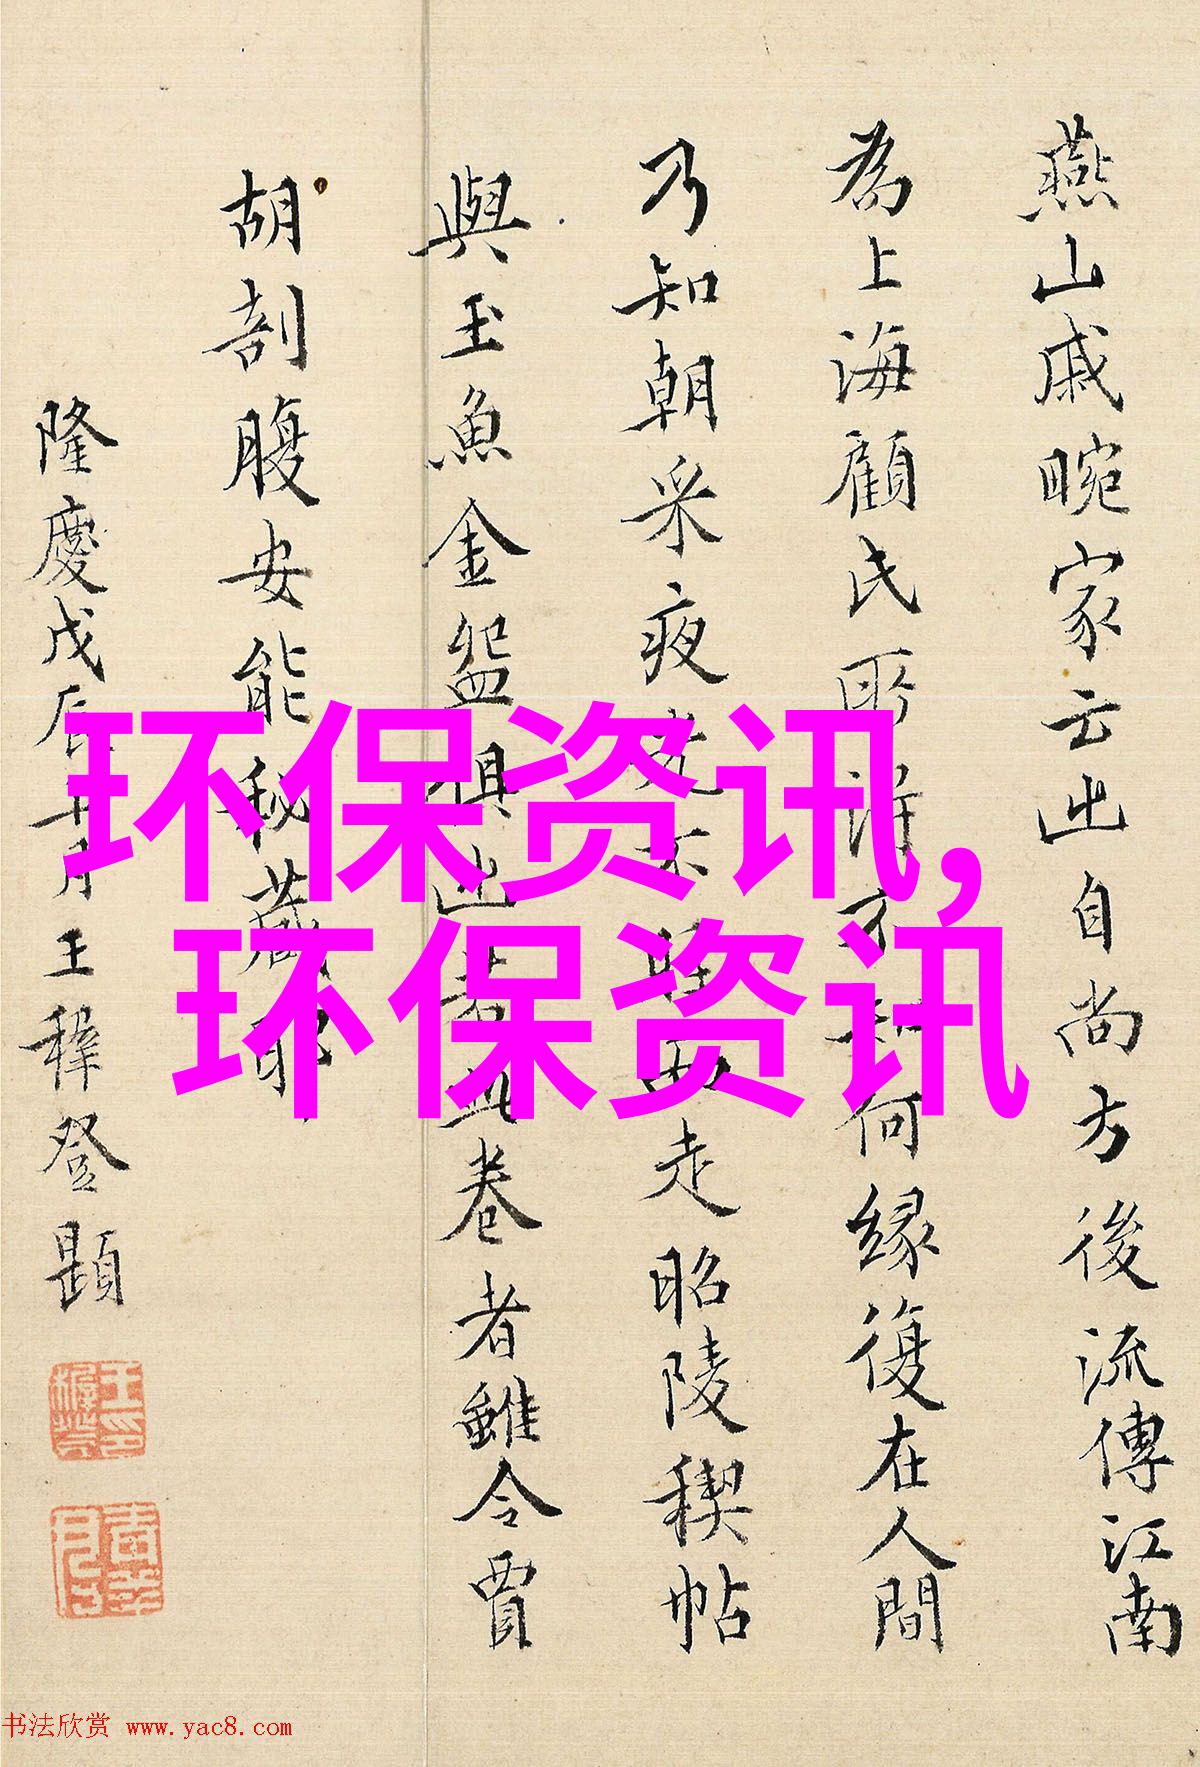 燕山戚畹家云出自尚方後流傳江南
為上海顧氏所得不知何緣復在人間
乃知朝采夜光不脛而走昭陵稧帖
與玉魚金盌俱出若此卷者雖令賈
胡剖腹安能秘藏耶
隆慶戊辰十月王穉登題
环保资讯,
环保资讯
书法欣赏 www.yac8.com